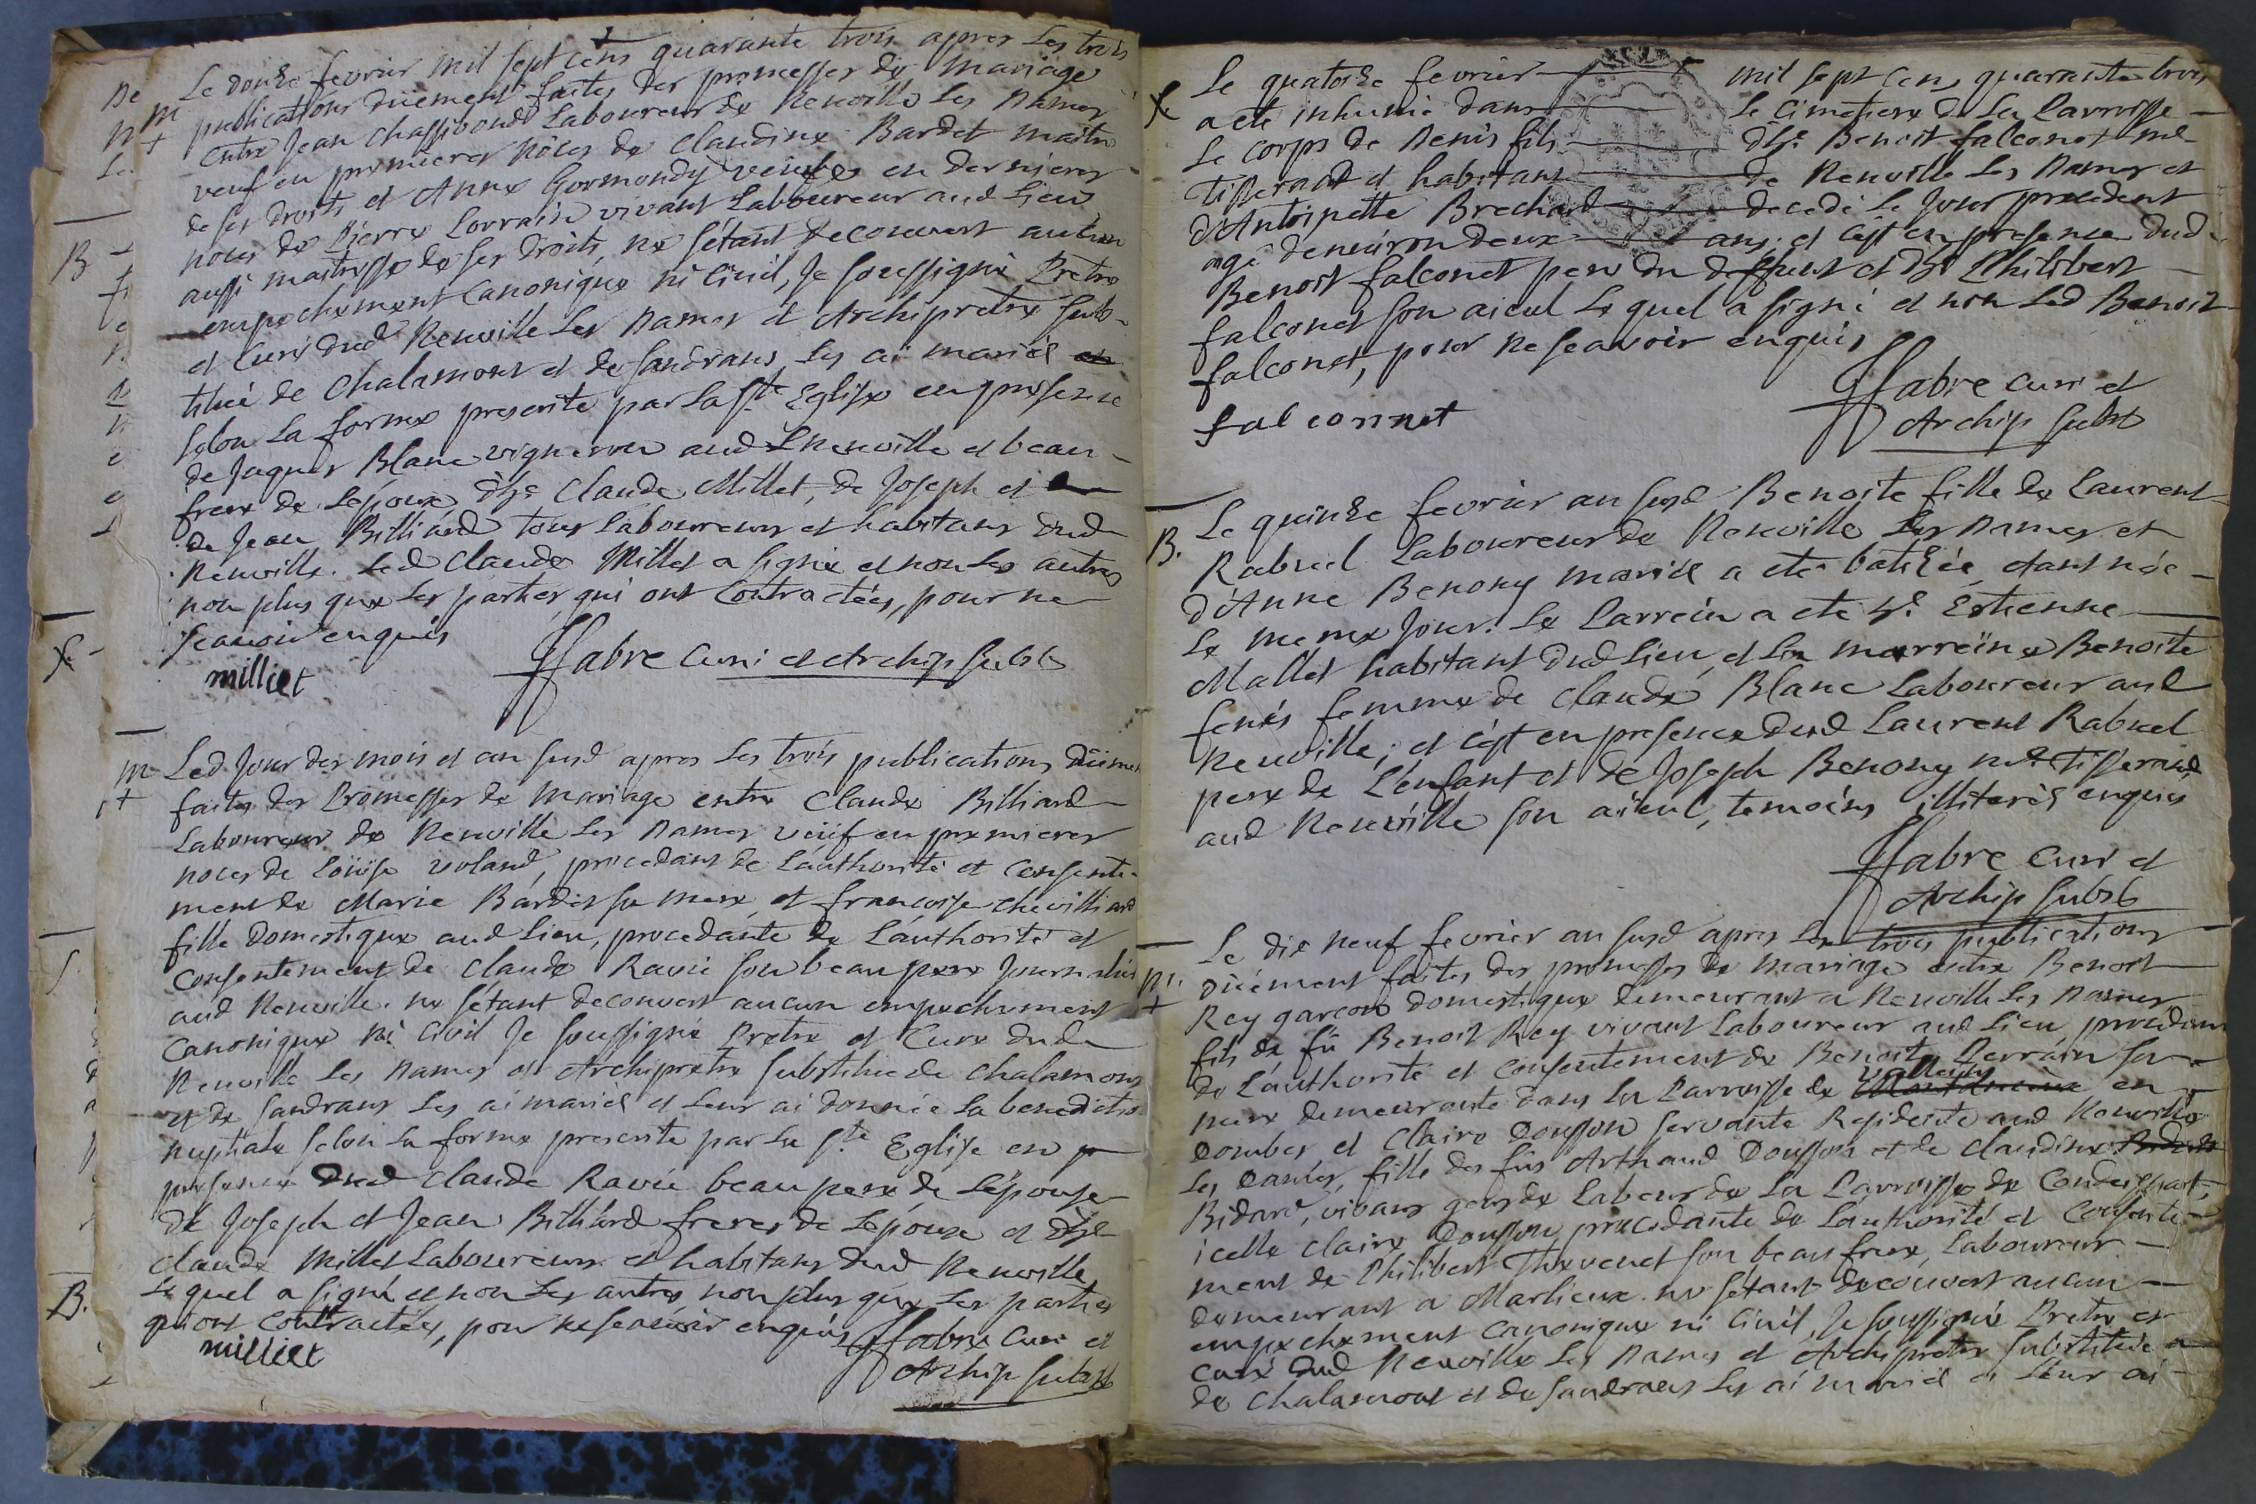 Le douze fevrier mil sept cens quarante trois apres les trois
publications düement faites des promesses de mariage
m
+
entre Jean Chassiboud Laboureur de Neuville les Dames
veuf en premieres nôces de Claudine Bardet maitre
de ses droits et Anne Gormondy veuve en dernieres
noces de Pierre Lorrain vivant Laboureur aud Lieu
aussi maitresse de ses droits, ne s'étant decouvert aucun
empechement canonique ni Civil, Je soussigné Prêtre
et Curé dud Neuville les Dames et Archiprêtre subs-
titué de Chalamont et de Sandrans les ai mariés
selon la forme prescrite par la Ste Eglise en presence
de Jaques Blanc vigneron aud Neuville et beau-
frere de L'époux, d'h.e Claude Millet, de Joseph et
de Jean Billiard tous Laboureurs et habitans dud
Neuville. Led Claude Millet a signé et non les autres
non plus que les parties qui ont Contractées, pour ne
sçavoir enquis
milliet
ffabre Curé et Archip subst
m
+
Led Jour des mois et an susd apres les trois publications düement
faites des Promesses de mariage entre Claude Billiard
Laboureur de Neuville les Dames veüf en premieres
noces de Loüise voland, procedant de L'authorité et Consente-
ment de Marie Bardet sa mere, et francoise chevilliard
fille Domestique aud Lieu, procedante de L'authorité et
Consentement de Claude Ravié son beaupere Journalier
aud Neuville. ne s'étant decouvert aucun empechement
Canonique ni Civil Je soussigné Pretre et Curé dud
Neuville les Dames et Archipretre substitué de Chalamont
et de Sandrans les ai mariés et leur ai donnée la benediction
nuptiale selon la forme prescrite par la Ste Eglise en
presence dud Claude Ravié beaupere de L'épouse
de Joseph et Jean Billiard freres de L'époux et d'h.e
Claude Millet Laboureurs et habitans dud Neuville
Lequel a signé et non les autres non plus que les parties
qui ont Contractées, pour ne sçavoir enquis
milliet
ffabre Curé et
Archip subst
Le quatorze fevrier mil sept cens quarante trois
a eté inhumé dans le Cimetiere de la Parroisse
Le corps de Denis fils d'h.e Benoit falconet md
Tisserand et habitant de Neuville les Dames et
d'Antoinette Brechard decedé le Jour precedent
agé denviron deux ans; et c'est en presence dud
Benoit falconet pere du deffunt et d'h.e Philibert
falconet son aieul Lequel a signé et non Led Benoit
falconet, pour ne sçavoir enquis
falconnet
ffabre curé et
Archip subst
B.
Le quinze fevrier an susd Benoite fille de Laurent
Rabuel Laboureur de Neuville les Dames et
d'Anne Benony mariés a eté batisée etant née
le meme Jour. Le Parrein a eté S.r Estienne
Mallet habitant dud Lieu et La marreine Benoite
fenés femme de Claude Blanc Laboureur aud
Neuville; et c'est en presence dud Laurent Rabuel
pere de L'enfant et de Joseph Benony md Tisserand
aud Neuville son aïeul, temoins illiterés enquis
ffabre Curé et
Archip subst
m.
+
Le dix neuf fevrier an susd apres les trois publications
düement faites des promesses de mariage entre Benoit
Rey garcon domestique demeurant a Neuville les Dames
fils de fû Benoit Rey vivant Laboureur aud Lieu procedant
de L'authorité et consentement de Benoite Perrain sa
mere demeurante dans la Parroisse de valleins en
Dombes et Claire Dousson servante Residente aud Neuville
Les Dames, fille des fûs Arthaud Dousson et de Claudine
Bidard, vivans gens de Labeur de la Parroisse de Condeissiat,
icelle Claire Dousson procedante de Lauthorité et Consente-
ment de Philibert Thevenet son beaufrere, Laboureur
demeurant a Marlieux. ne s'étant decouvert aucun
empechement canonique ni Civil, Je soussigné Pretre et
curé dud Neuville les Dames et Archipretre substitué
de Chalamont et de Sandrans les ai mariés et leur ai